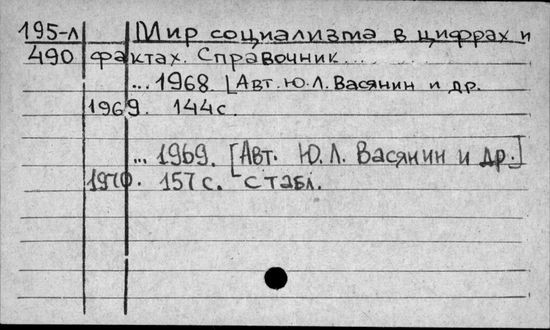 195-л Мир социализма в цифрах и
490 фактах. Справочник...
... 1968. [Авт. Ю.Л. Васянин и др.
1969. 144с.
... 1969. [Авт. Ю.Л. Васянин и др.]
1970. 157с. с табл.